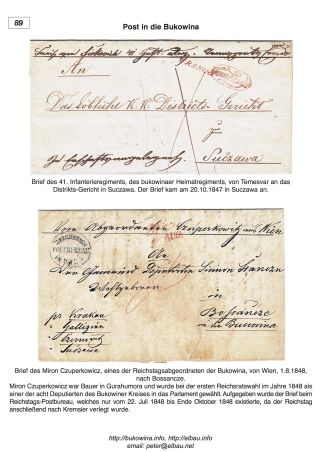 89
Post in die Bukowina
An
Das löbliche K. K. Districts-Gericht
zu
Suczawa
Brief des 41. Infanterieregiments, des bukowinaer Heimatregiments, von Temesvar an das
Distrikts-Gericht in Suczawa. Der Brief kam am 20.10.1847 in Suczawa an.
Vom Abgeordneten Czuperkowitz aus Wien
An
Den Gemeind Deputirten Simion
Wohlgeboren
in
Bossancze
in die Bucowina
pr Krakau
Gallizien
Czernowitz
Suczawa
Brief des Miron Czuperkowicz, eines der Reichstagsabgeordneten der Bukowina, von Wien, 1.8.1848,
nach Bossancze.
Miron Czuperkowicz war Bauer in Gurahumora und wurde bei der ersten Reichsratswahl im Jahre 1848 als
einer der acht Deputierten des Bukowiner Kreises in das Parlament gewählt. Aufgegeben wurde der Brief beim
Reichstags-Postbureau, welches nur vom 22. Juli 1848 bis Ende Oktober 1848 existierte, da der Reichstag
anschließend nach Kremsier verlegt wurde.
http://bukowina.info, http://eibau.info
email: peter@eibau.net